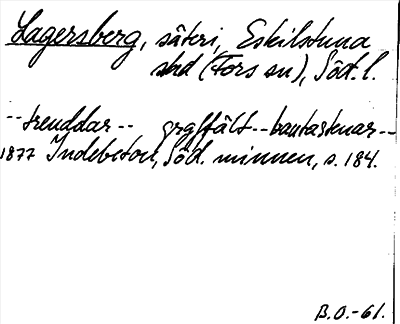 Lagersberg, säteri, Eskilstuna
stad (Fors sn), Söd. l.
--treuddar-- grgffält--bautastenar--
1877 Indebetou, Söd. minnen, s. 184.
B.O.-61.